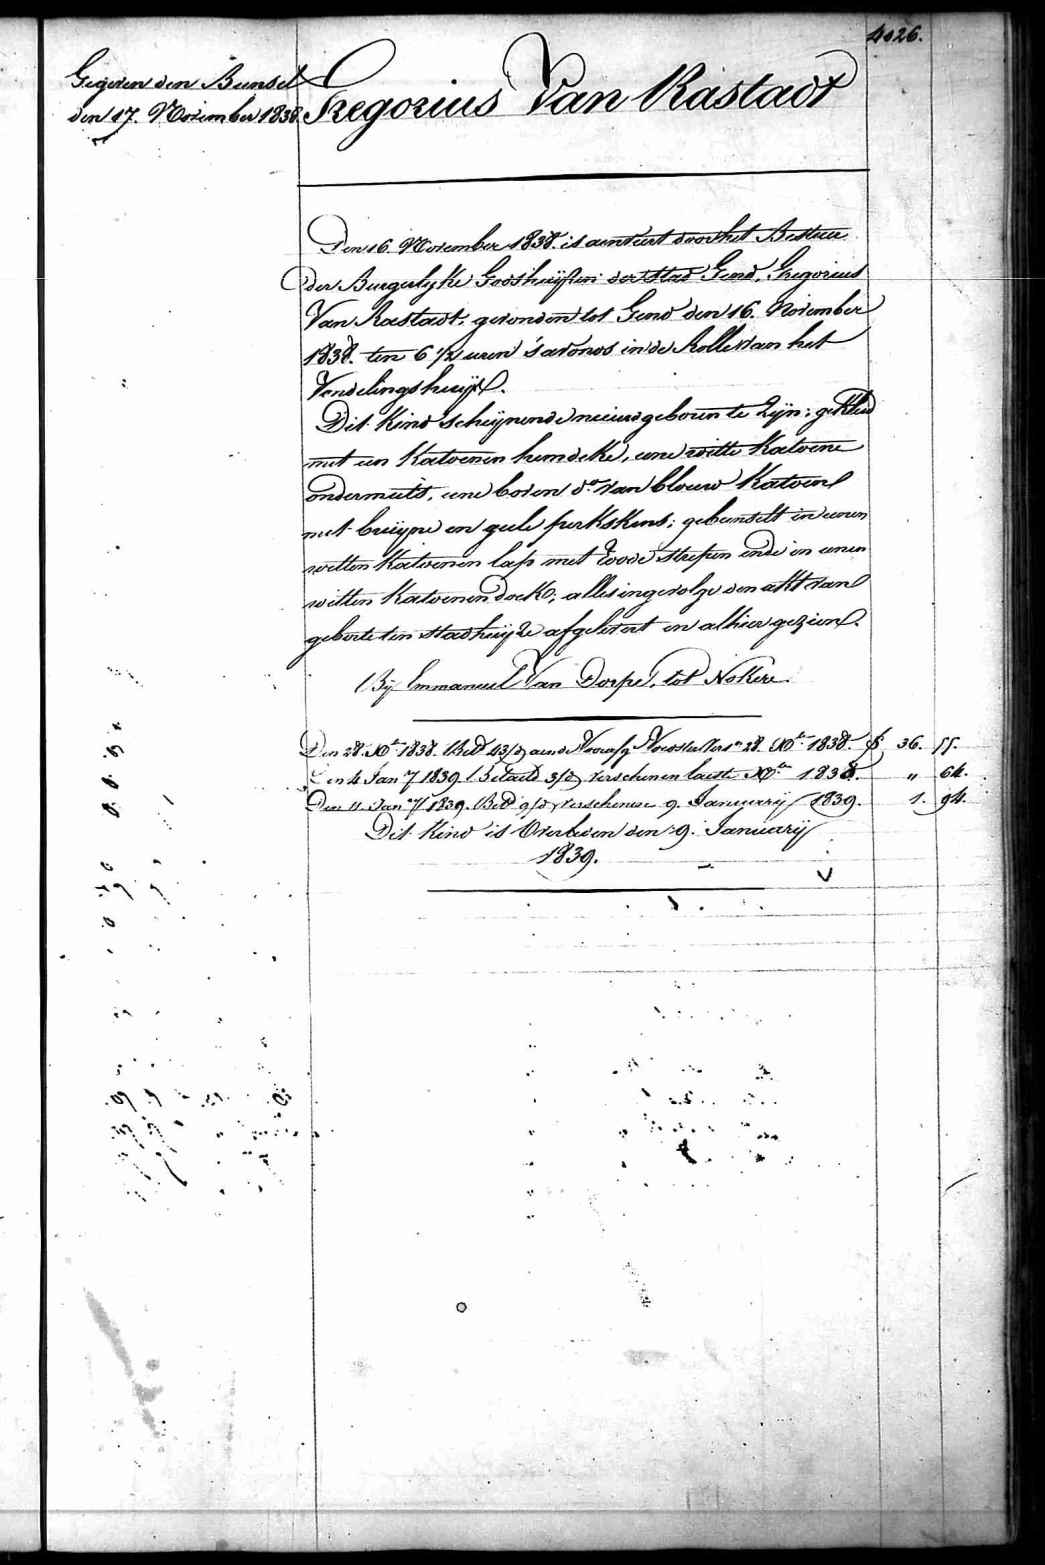 4026.
Gegeven den Bunsel
den 17. November 1838.
Gregorius Van Rastadt
Den 16. November 1838. is aenveert door het Bestuer
der Burgerlyke Godshuijsen der stad Gend, Gregorius
Van Rastadt, gevonden tot Gend den 16. November
1838. ten 6 1/2 uren 's avonds in de Rolle van het
Vondelingshuijs.
Dit Kind schijnende nieuwgeboren te Zijn; gekleed
met een Katoenen hemdeke, eene witte Katoene
ondermuts, eene boven do. van blauw Katoen
met bruijne en geele perkskens; gebunselt in eenen
witten Katoenen lap met roode strepen ende in eenen
witten Katoenen doek; alles ingevolge den akt van
geborte ten stadhuijze afgelevert en alhier gezien.
Bij Emmanuel Van Dorpe, tot Nokere.
Den 28. Xbr 1838. Betd 43/d aen de Voorsz. 28. Xbr 1838. 36. 55.
Den 4 Jan 1839 Betaeld 3/d verschenen laeste Xbr 1838. " 64.
Den 11 Jan 1839. Betd 9/d verschenen 9. Januarij 1839. 1. 94.
Dit Kind is Overleden den 9. Januarij
1839.